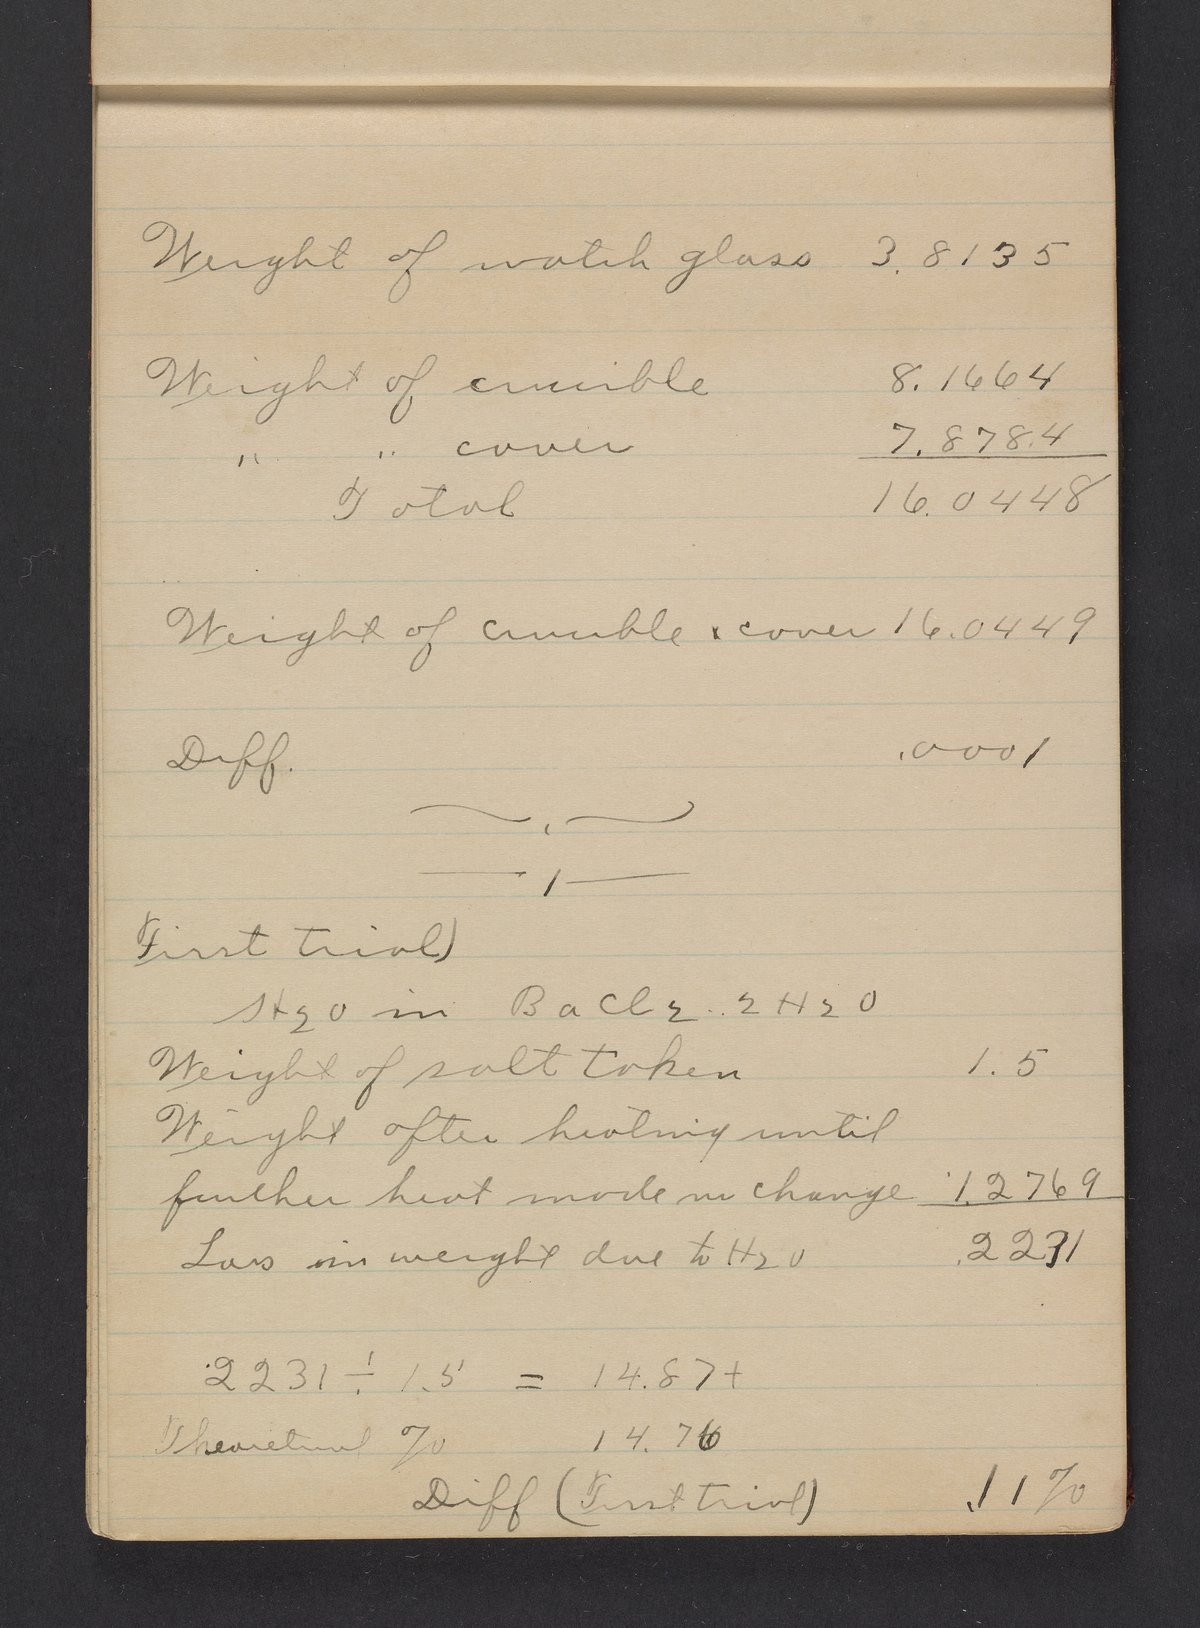 Weight of watch glass 3.8135
Weight of crucible 8.1664
" " cover 7.8784
Total 16.0448
Weight of crucible & cover 16.0449
Diff. .0001
First trial)
H2O in BaCl2..2H2O
Weight of salt taken 1.5
Weight after heating until
further heat made no change 1.2769
Loss in weight due to H2O .2231
.2231 ÷ 1.5 = 14.87+
Theoretical % 14.76
Diff (First trial) .11%